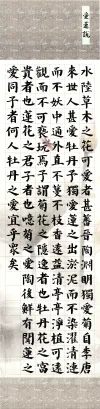 愛蓮說
水陸草木之花可愛者甚蕃晉陶淵明獨愛菊自李唐
來世人甚愛牡丹予獨愛蓮之出淤泥而不染濯清漣
而不妖中通外直不蔓不枝香遠益清亭亭淨植可遠
觀而不可褻玩焉予謂菊花之隱逸者也牡丹花之富
貴者也蓮花之君子者也噫菊之愛陶後鮮有聞蓮之
愛同予者何人牡丹之愛宜乎眾矣